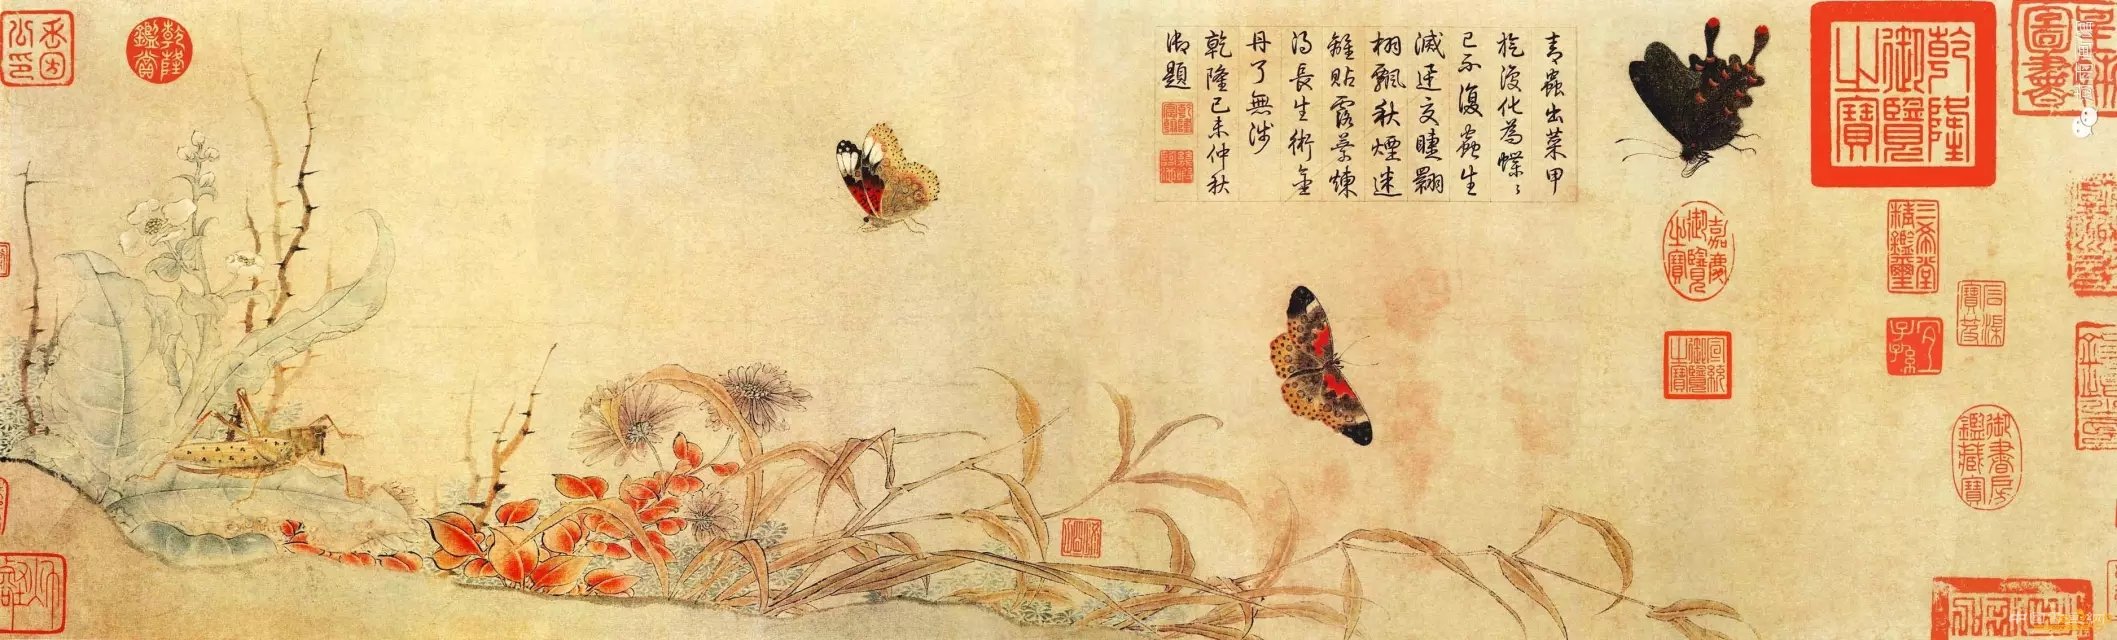 乾隆御覽之寶
三希堂精鑑璽
石渠寶笈
宜子孫
御書房鑑藏寶
嘉慶御覽之寶
宣統御覽之寶
青蟲出菜甲
旋復化為蝶〻
已不復蟲生
滅迅交睫翾
栩飄秋煙迷
離貼露葉煉
得長生術金
丹了無涉
乾隆己未仲秋
御題
乾隆鑑賞